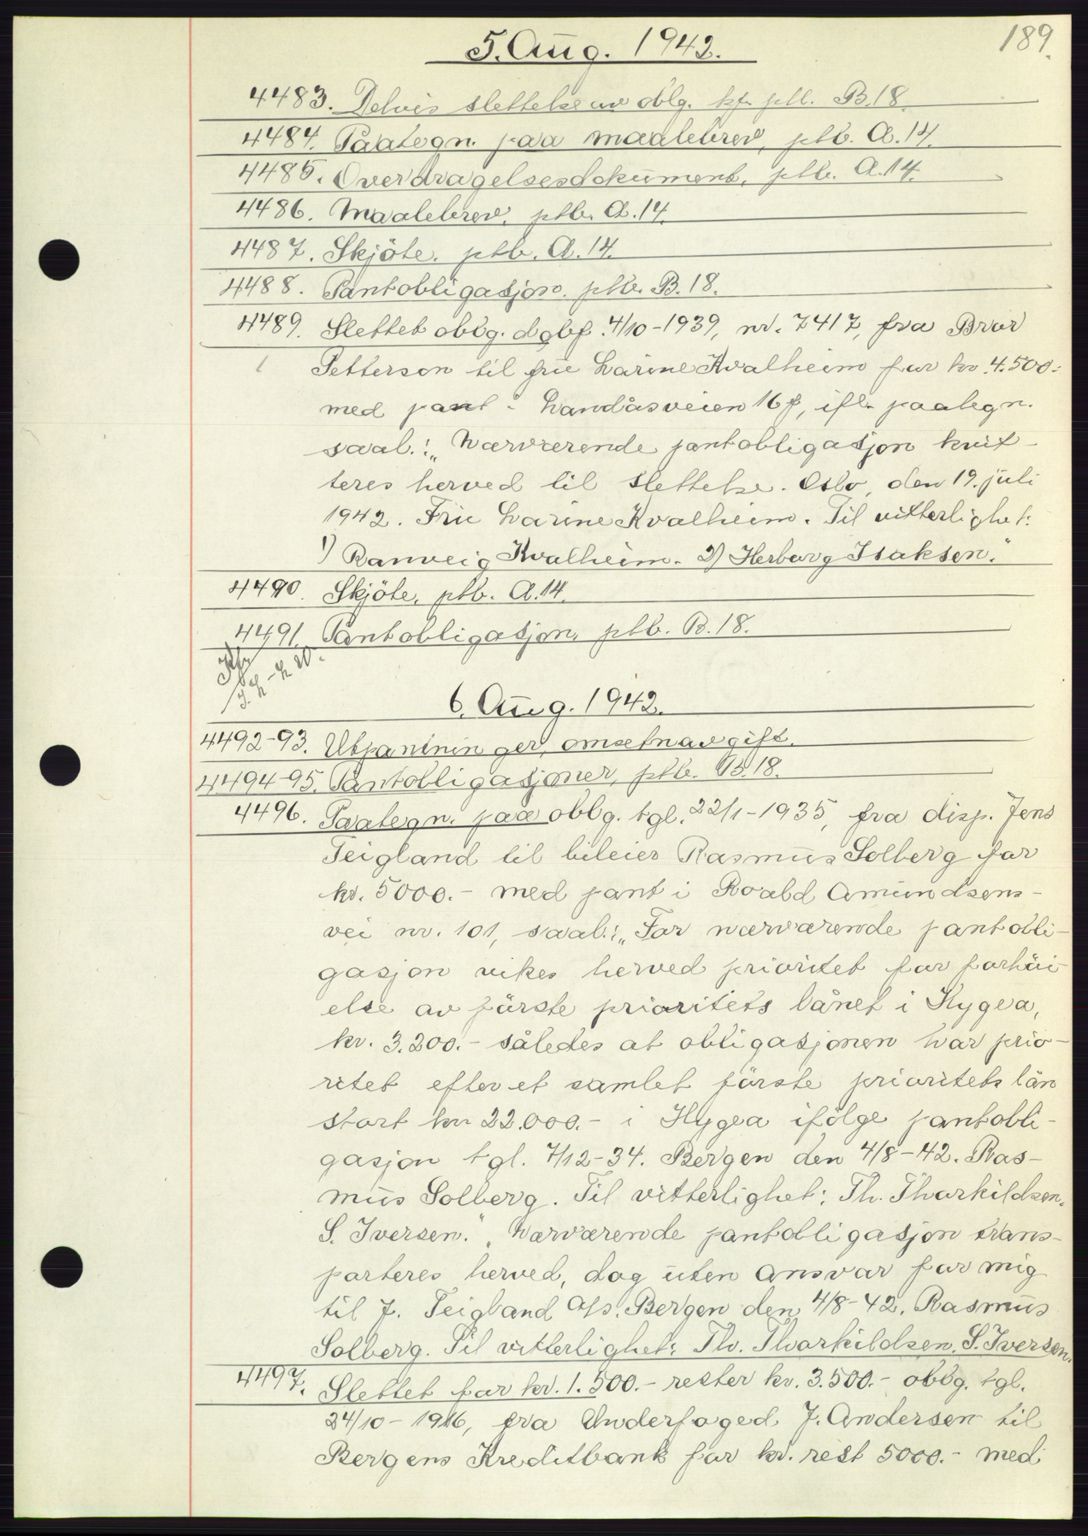 189.
5. Aug. 1942.
4483. Delvis slettelse av oblg. kfr. ptb. B.18.
4484. Paategn. paa maalebrev, ptb. A.14.
4485. Overdragelsesdokument, ptb. A.14.
4486. Maalebrev, ptb. A.14.
4487. Skjöte, ptb. A.14.
4488. Pantobligasjon, ptb. B.18.
4489. Slettet oblg. dgbf. 4/10-1939, nr. 7417, fra Bror
Petterson til frü Larine Kvalheim for kr. 4.500.-
med pant i Landåsveien 16 f, ifl. paategn.
saal.: „Nærværende pantobligasjon kvit-
teres herved til slettelse. Oslo, den 19. juli
1942. Frü Larine Kvalheim. Til vitterlighet:
1) Ranveig Kvalheim. 2) Herborg Isaksen."
4490. Skjöte, ptb. A.14.
4491. Pantobligasjon, ptb. B.18.
6. Aug. 1942.
4492-93. Utpantninger, omsetnavgift.
4494-95. Pantobligasjoner, ptb. B.18.
4496. Paategn. paa oblg. tgl. 22/1-1935, fra disp. Jens
Teigland til bileier Rasmüs Solberg for
kr. 5000.- med pant i Roald Amündsens-
vei nr. 101, saal.: „For nærværende pantobli-
gasjon vikes herved prioritet for forhöi-
else av förste prioritets lånet i Hygea,
kr. 3.200.- således at obligasjonen har prio-
ritet efter et samlet förste prioritets lån
stort kr. 22.000.- i Hygea ifölge pantobli-
gasjon tgl. 7/12-34. Bergen den 4/8-42. Ras-
müs Solberg. Til vitterlighet: Th. Thorkildsen.
S. Iversen." „Nærværende pantobligasjon trans-
porteres herved, dog üten ansvar for mig
til J. Teigland A/S. Bergen den 4/8-42. Rasmüs
Solberg. Til vitterlighet: Th. Thorkildsen. S. Iversen.
4497. Slettet for kr. 1.500.- rester kr. 3.500.- oblg. tgl.
24/10-1916, fra Underfoged J. Andersen til
Bergens Kreditbank for kr. rest 5000.- med